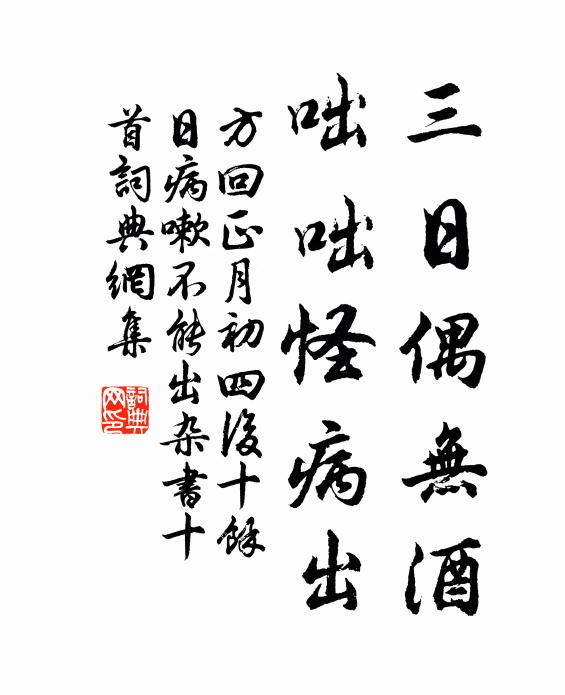 三日偶無酒
咄咄怪病出
方回正月初四後十餘
日病嗽不能出杂書十
首詞典網集
詞典网印